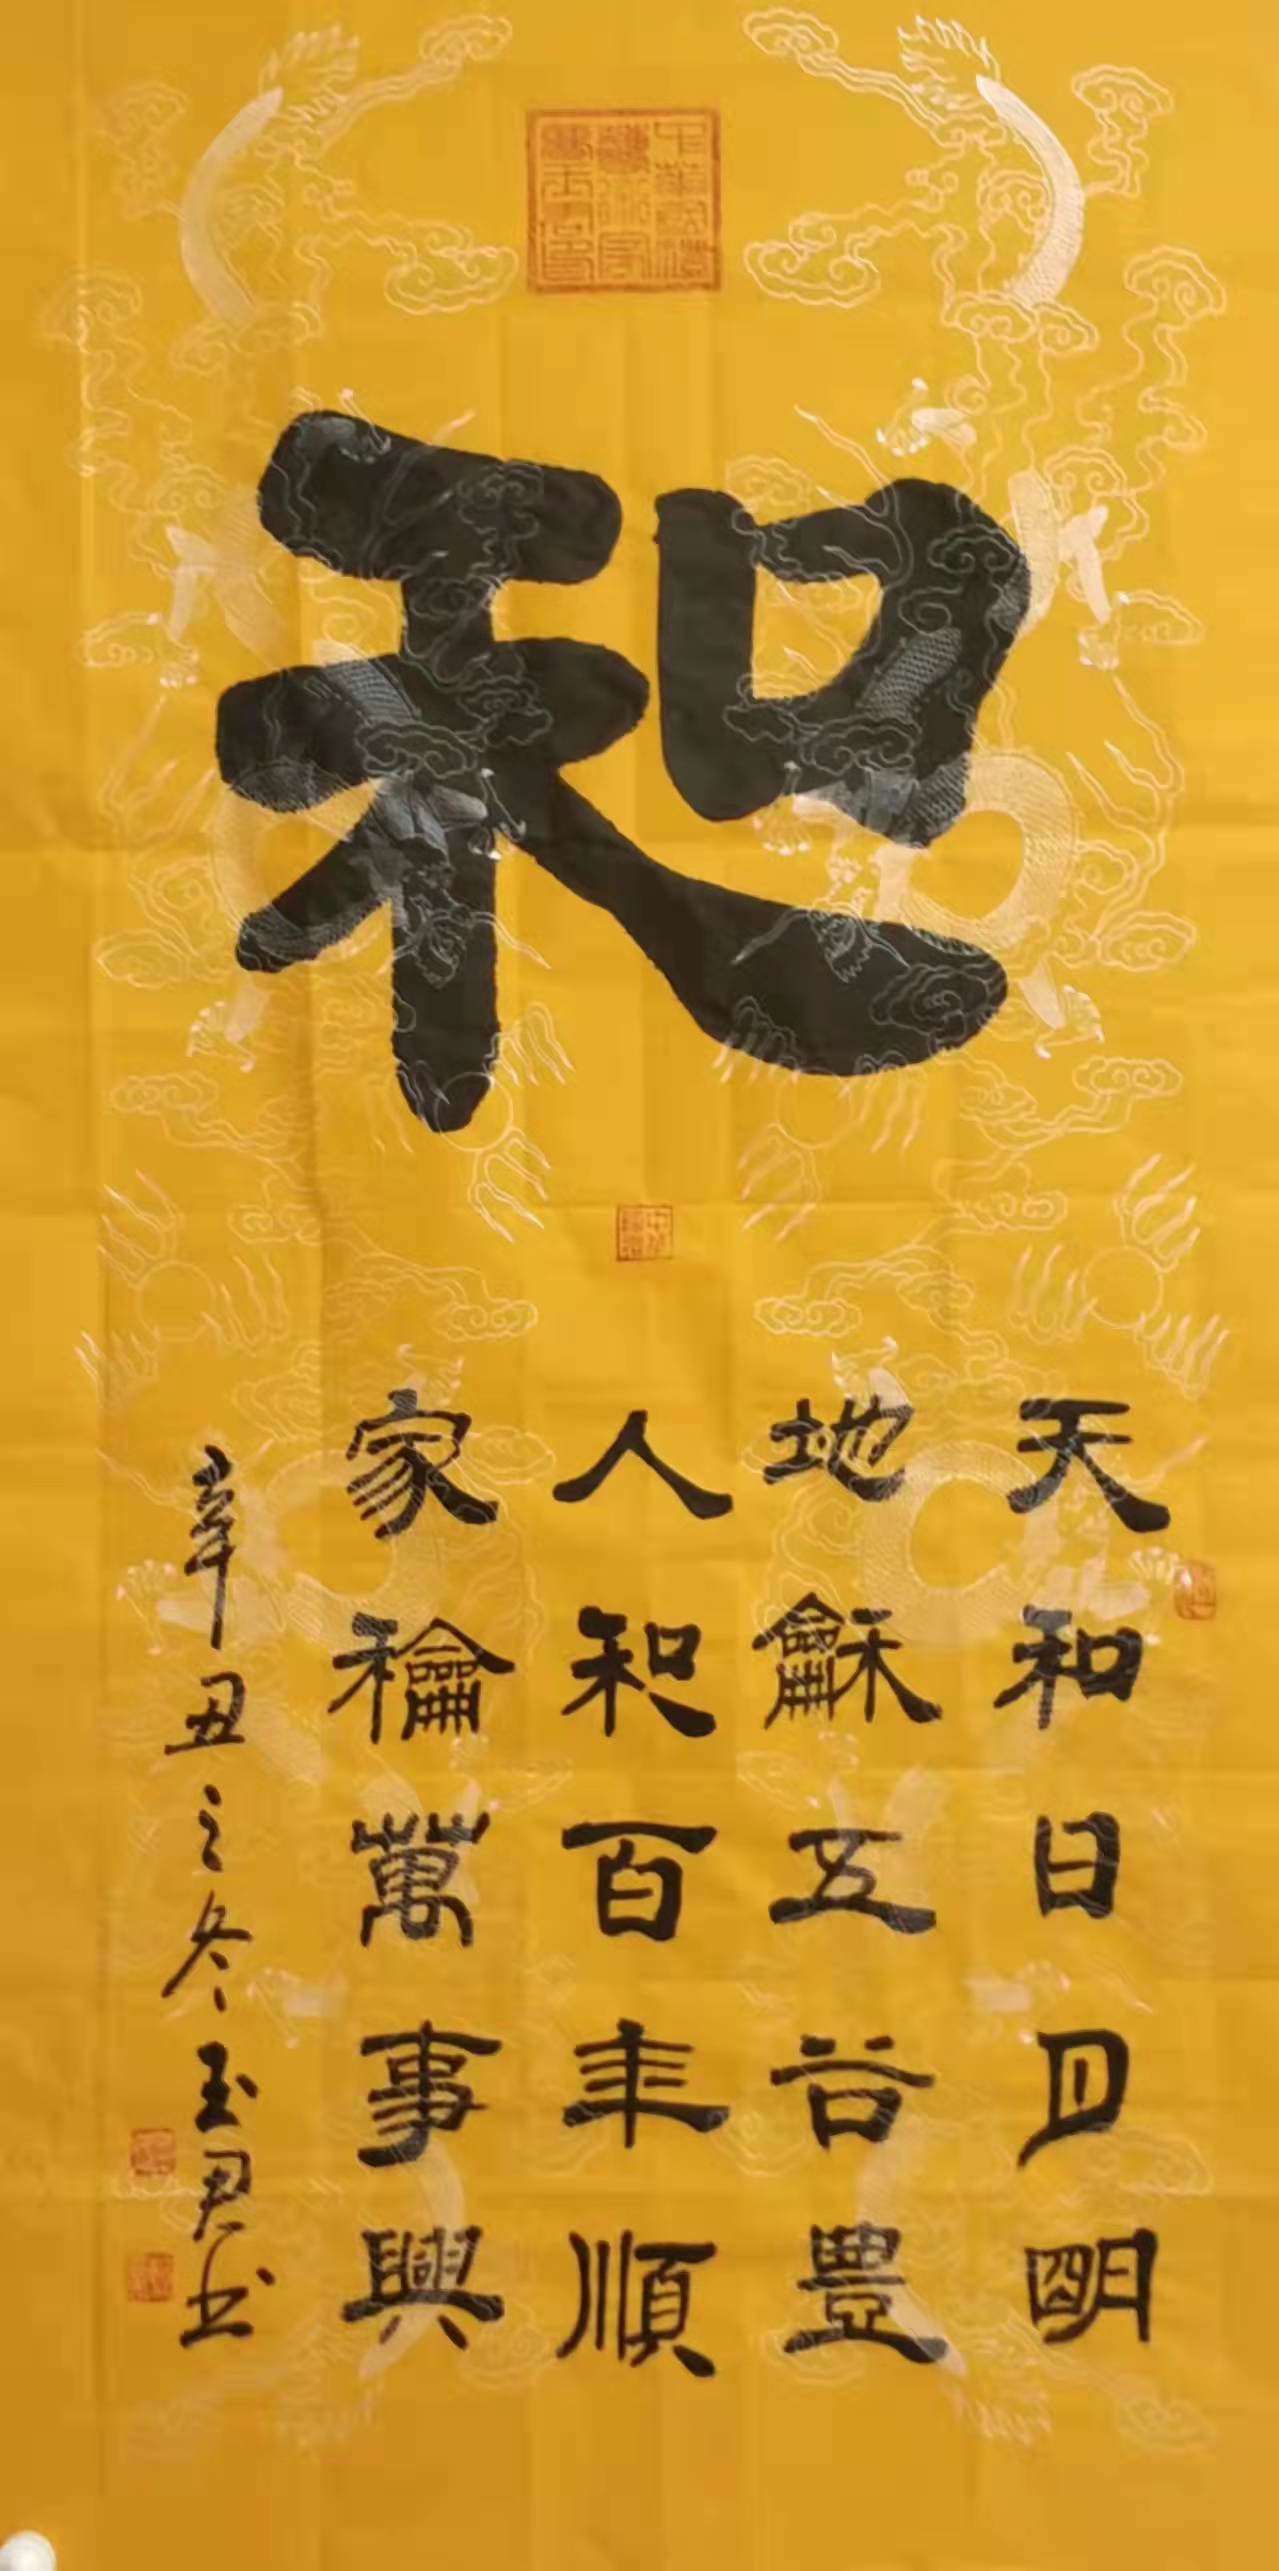 和
天和日月明
地龢五谷豊
人和百年順
家龢萬事興
辛丑之冬玉君书